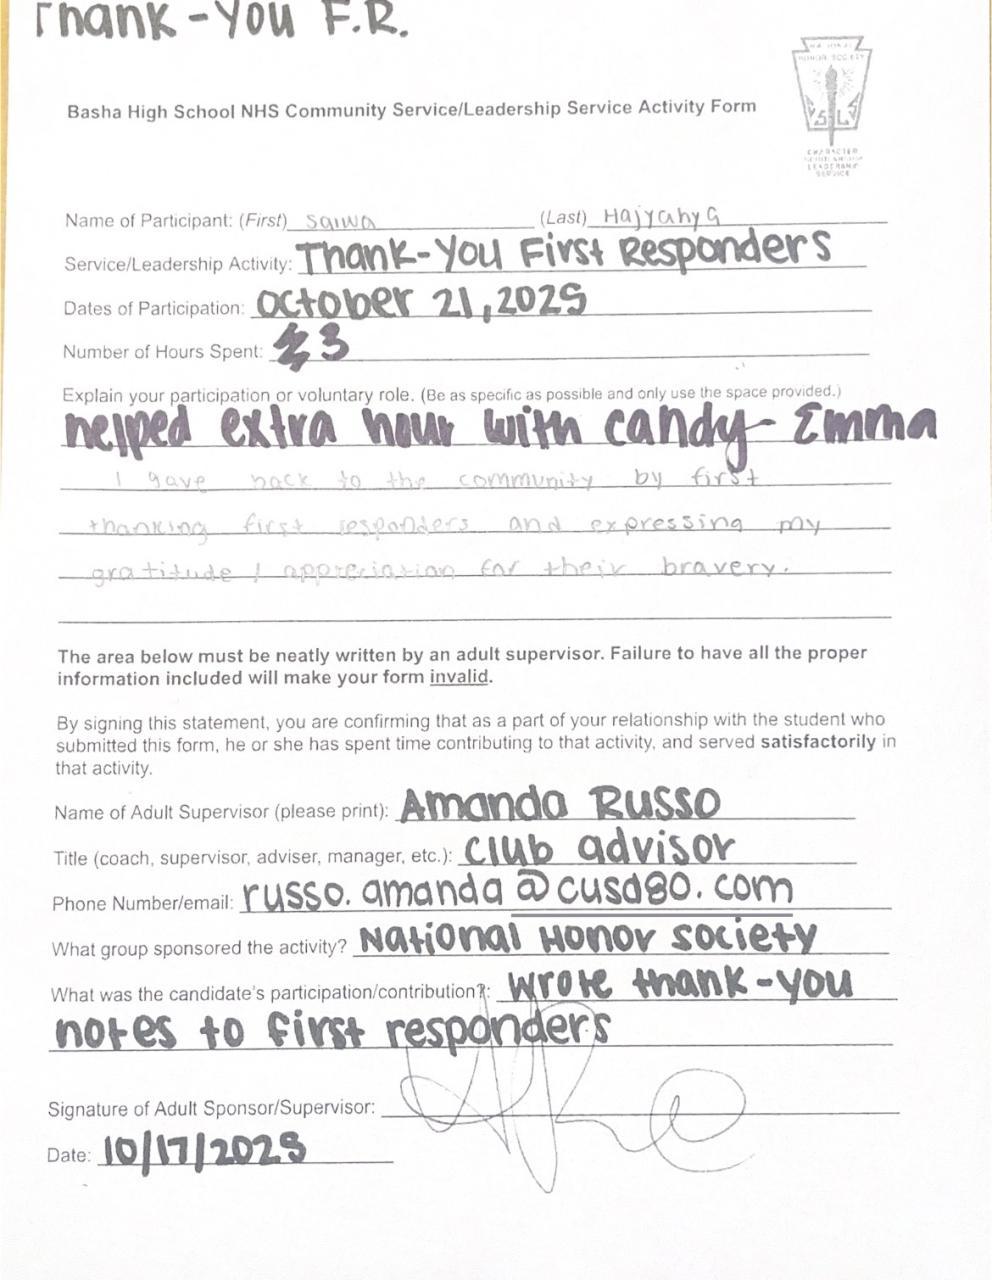 Thank-You F.R.
NATIONAL
HONOR SOCIETY
Basha High School NHS Community Service/Leadership Service Activity Form
S L
CHARACTER
SCHOLARSHIP
LEADERSHIP
SERVICE
Name of Participant: (First) Salwa (Last) Hajyahya
Service/Leadership Activity: Thank-You First Responders
Dates of Participation: October 21, 2025
Number of Hours Spent: 3
Explain your participation or voluntary role. (Be as specific as possible and only use the space provided.)
helped extra hour with candy- Emma
I gave back to the community by first
thanking first responders and expressing my
gratitude / appreciation for their bravery.
The area below must be neatly written by an adult supervisor. Failure to have all the proper
information included will make your form invalid.
By signing this statement, you are confirming that as a part of your relationship with the student who
submitted this form, he or she has spent time contributing to that activity, and served satisfactorily in
that activity.
Name of Adult Supervisor (please print): Amanda Russo
Title (coach, supervisor, adviser, manager, etc.): Club advisor
Phone Number/email: russo.amanda@cusd80.com
What group sponsored the activity? National Honor Society
What was the candidate's participation/contribution?: Wrote thank-you
notes to first responders
Signature of Adult Sponsor/Supervisor:
Date: 10/17/2025